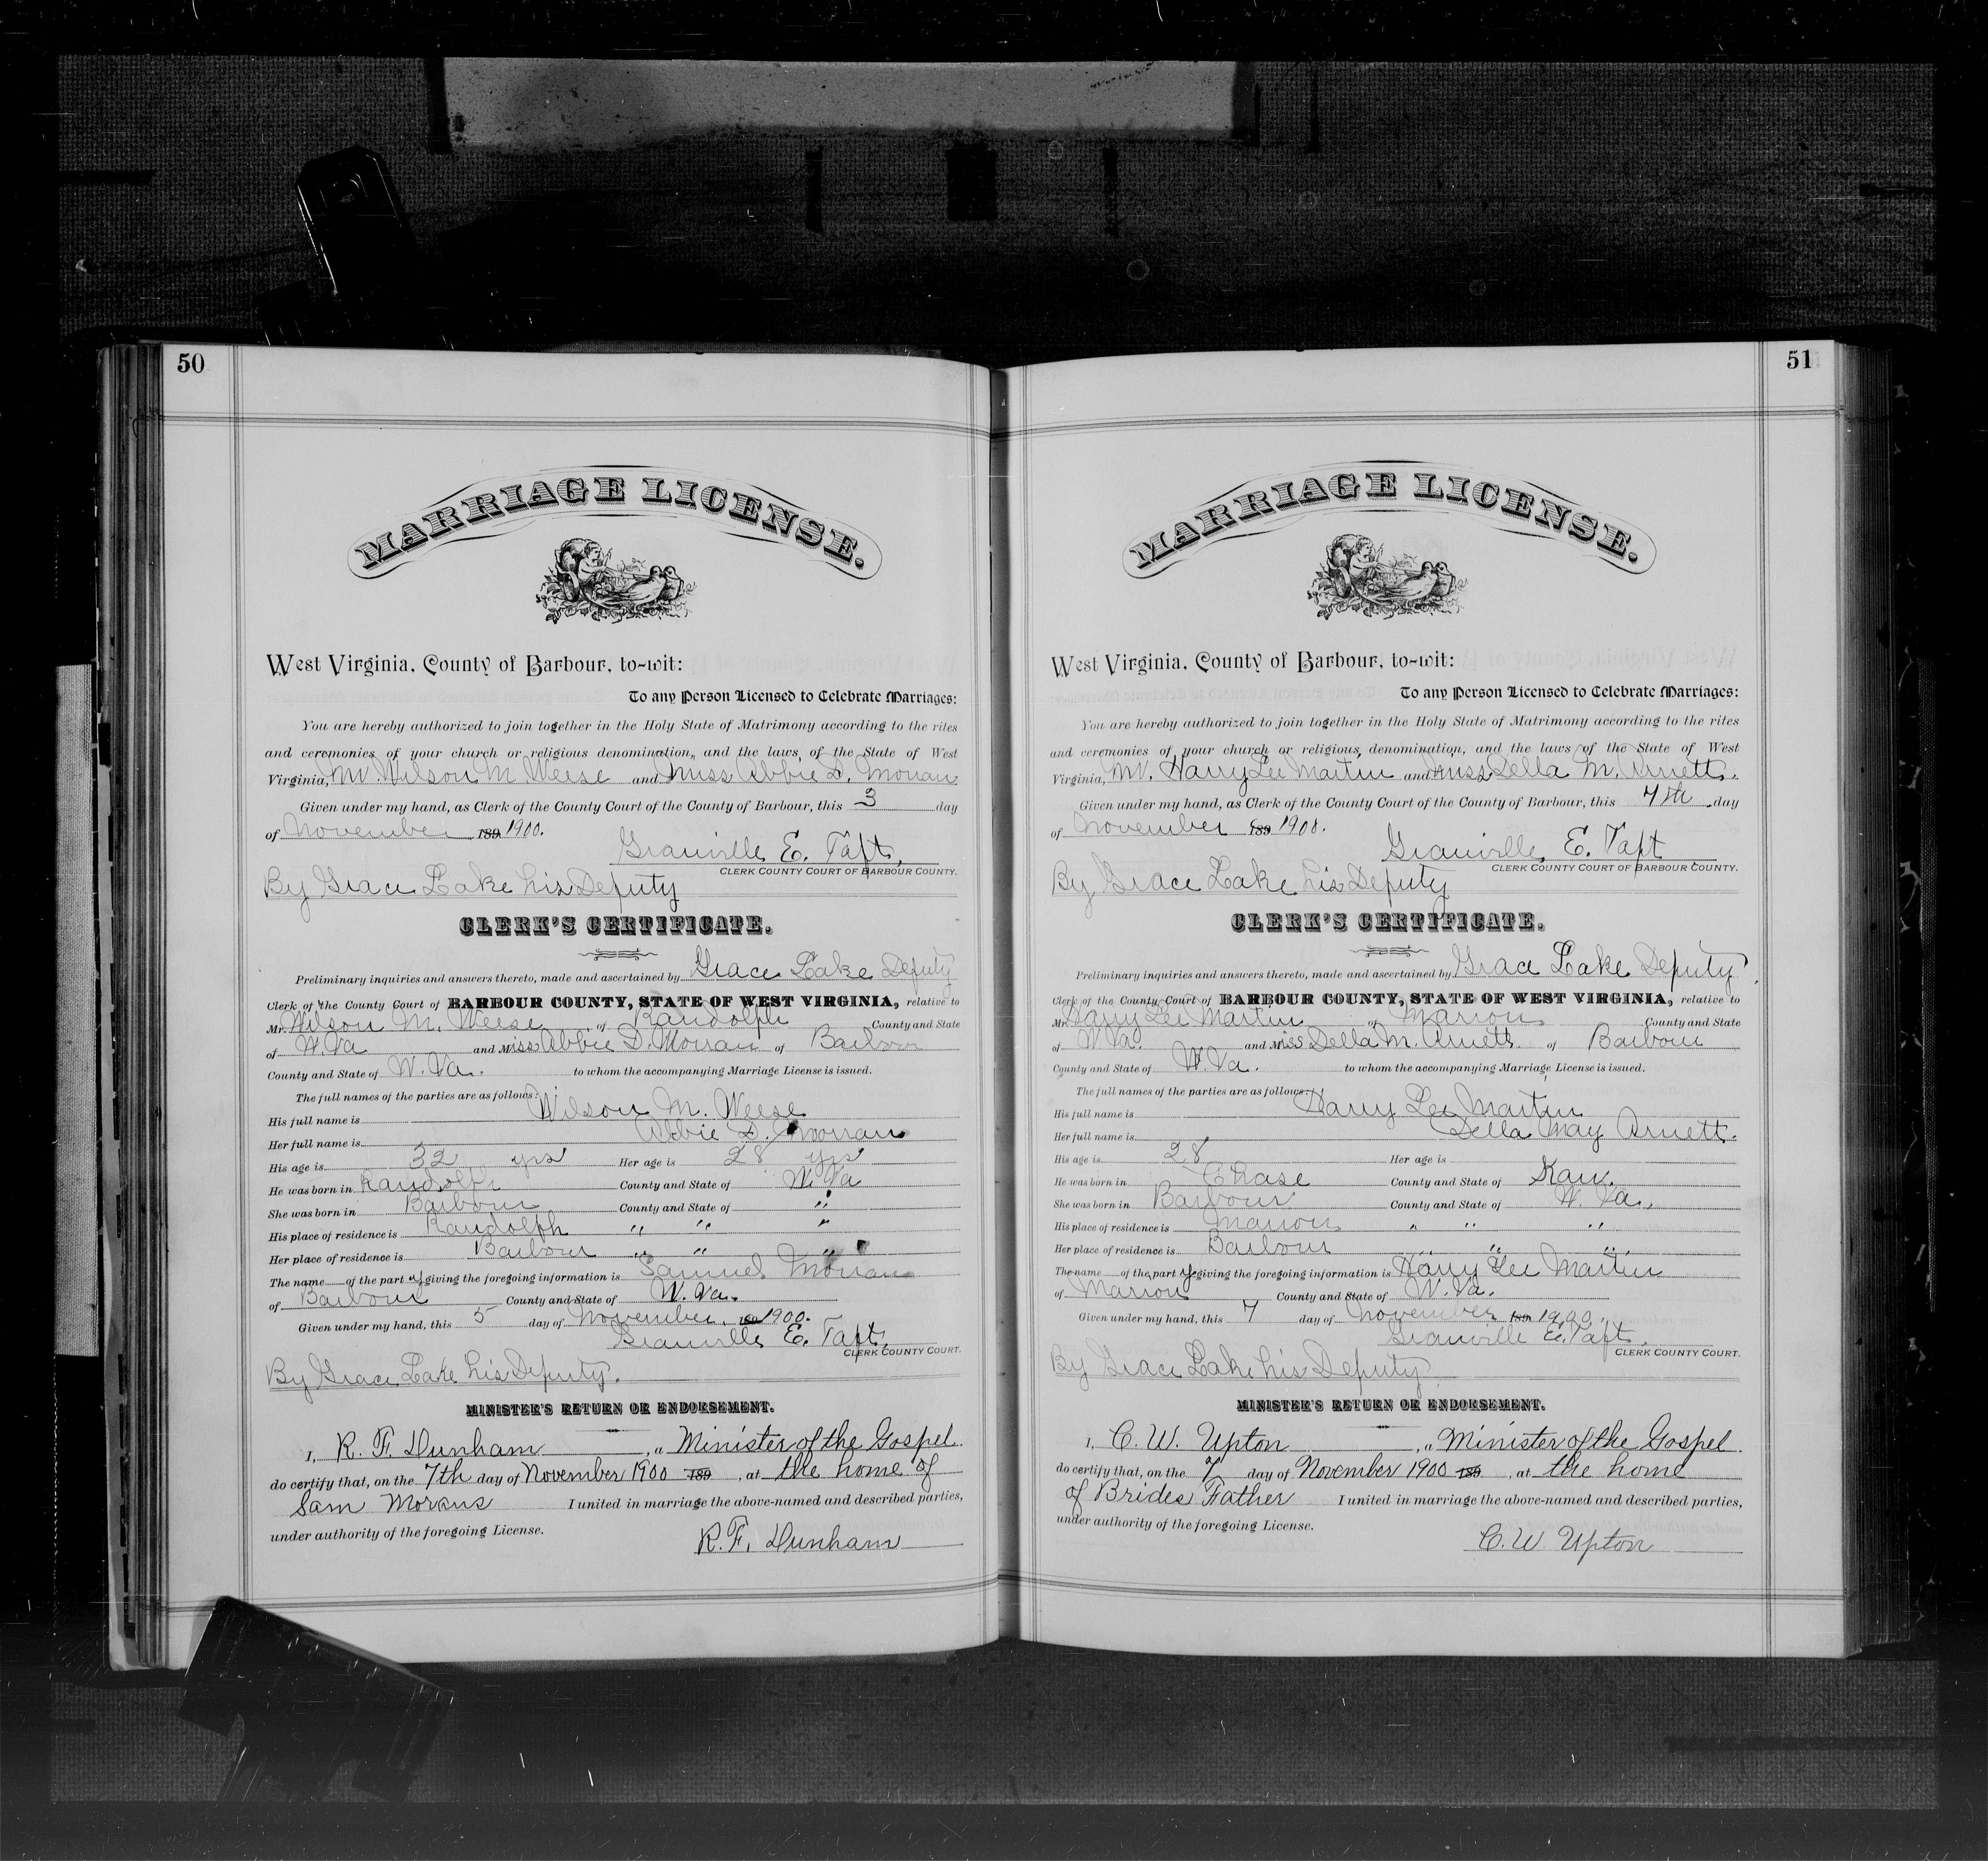 50
MARRIAGE LICENSE.
West Virginia, County of Barbour, to-wit:
To any Person Licensed to Celebrate Marriages:
You are hereby authorized to join together in the Holy State of Matrimony according to the rites
and ceremonies of your church or religious denomination, and the laws of the State of West
Virginia, Mr. Wilson M. Weese and Miss Abbie D. Moran
Given under my hand, as Clerk of the County Court of the County of Barbour, this 3 day
of November 189 1900.
Granville E. Taft,
CLERK COUNTY COURT OF BARBOUR COUNTY.
By Grace Lake his Deputy
CLERK'S CERTIFICATE.
Preliminary inquiries and answers thereto, made and ascertained by Grace Lake Deputy
Clerk of the County Court of BARBOUR COUNTY, STATE OF WEST VIRGINIA, relative to
Mr. Wilson M. Weese of Randolph County and State
of W.Va and Miss Abbie D. Moran of Barbour
County and State of W.Va. to whom the accompanying Marriage License is issued.
The full names of the parties are as follows:
His full name is Wilson M. Weese
Her full name is Abbie D. Moran
His age is 32 yrs Her age is 28 yrs
He was born in Randolph County and State of W.Va
She was born in Barbour County and State of "
His place of residence is Randolph " " "
Her place of residence is Barbour " " "
The name of the party giving the foregoing information is Samuel Moran
of Barbour County and State of W.Va.
Given under my hand, this 5 day of November 189 1900.
Granville E. Taft,
CLERK COUNTY COURT.
By Grace Lake his Deputy.
MINISTER'S RETURN OR ENDORSEMENT.
I, R. F. Dunham, a Minister of the Gospel.
do certify that, on the 7th day of November 1900 189, at the home of
Sam Morans I united in marriage the above-named and described parties,
under authority of the foregoing License.
R. F. Dunham
51
MARRIAGE LICENSE.
West Virginia, County of Barbour, to-wit:
To any Person Licensed to Celebrate Marriages:
You are hereby authorized to join together in the Holy State of Matrimony according to the rites
and ceremonies of your church or religious denomination, and the laws of the State of West
Virginia, Mr. Harry Lee Martin and Miss Della M. Arnett.
Given under my hand, as Clerk of the County Court of the County of Barbour, this 7th day
of November 189 1900.
Granville E. Taft
CLERK COUNTY COURT OF BARBOUR COUNTY.
By Grace Lake his Deputy
CLERK'S CERTIFICATE.
Preliminary inquiries and answers thereto, made and ascertained by Grace Lake Deputy
Clerk of the County Court of BARBOUR COUNTY, STATE OF WEST VIRGINIA, relative to
Mr. Harry Lee Martin of Marion County and State
of W.Va. and Miss Della M. Arnett. of Barbour
County and State of W.Va. to whom the accompanying Marriage License is issued.
The full names of the parties are as follows:
His full name is Harry Lee Martin
Her full name is Della May Arnett.
His age is 28 Her age is
He was born in Chase County and State of Kan.
She was born in Barbour County and State of W. Va.,
His place of residence is Marion " " "
Her place of residence is Barbour " "
The name of the party giving the foregoing information is Harry Lee Martin
of Marion County and State of W.Va.
Given under my hand, this 7 day of November 189 1900.
Granville E. Taft,
CLERK COUNTY COURT.
By Grace Lake his Deputy.
MINISTER'S RETURN OR ENDORSEMENT.
I, C. W. Upton, a Minister of the Gospel.
do certify that, on the 7 day of November 1900 189, at the home
of Brides Father I united in marriage the above-named and described parties,
under authority of the foregoing License.
C. W. Upton